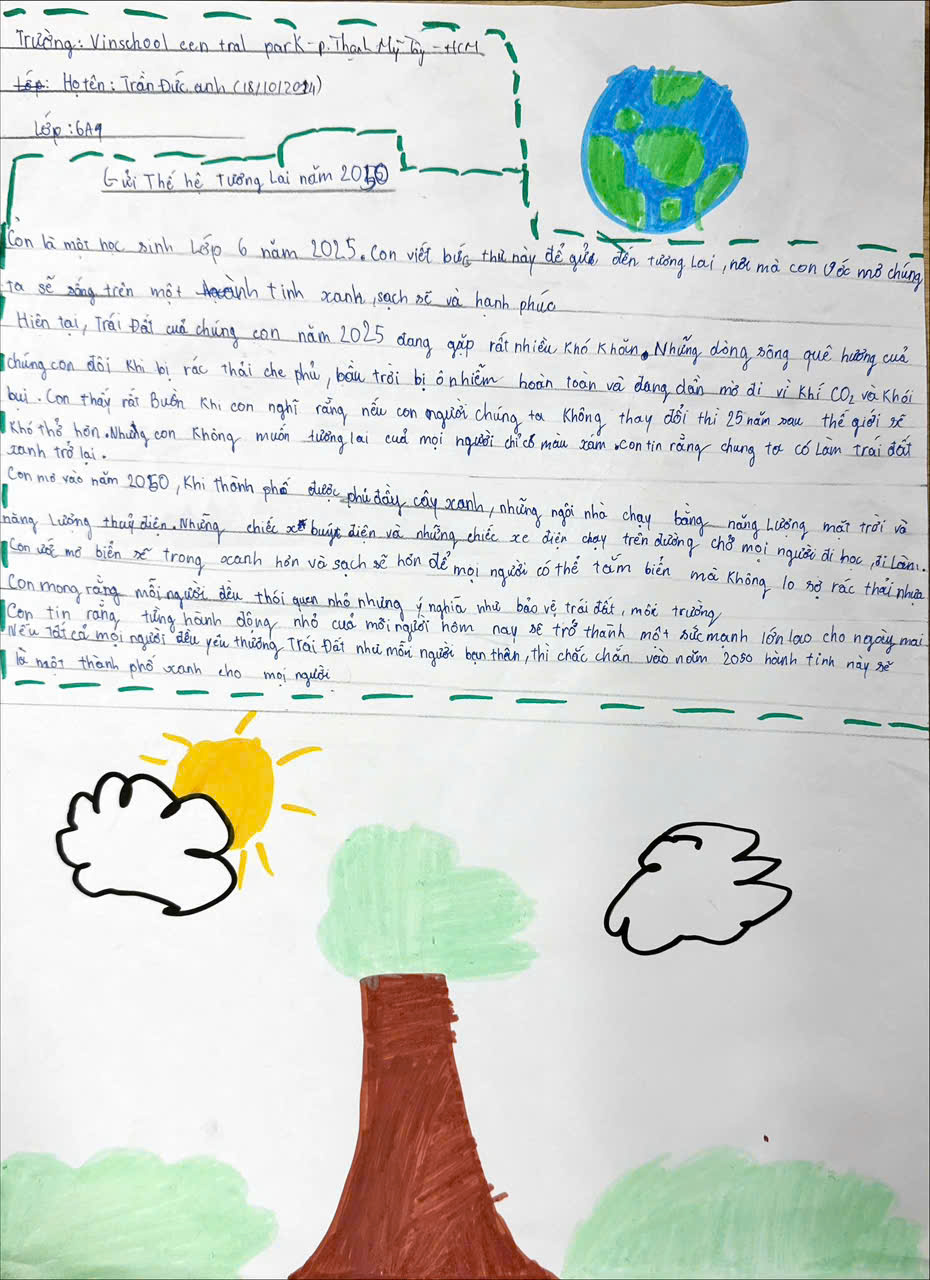 Trường: Vinschool cen tral park-p.Thạnh Mỹ Tây-HCM
Họ tên: Trần Đức anh (18/10/2014)
Lớp: 6A9
Gửi Thế hệ tương Lai năm 2050
Con là một học sinh Lớp 6 năm 2025. Con viết bức thư này để gửi đến tương Lai, nơi mà con ước mơ chúng
ta sẽ sống trên một hành tinh xanh, sạch sẽ và hạnh phúc
Hiện tại, Trái Đất cuả chúng con năm 2025 đang gặp rất nhiều khó khăn. Những dòng sông quê hương cuả
chúng con đôi khi bị rác thải che phủ, bầu trời bị ô nhiễm hoàn toàn và đang dần mờ đi vì khí CO2 và khói
bụi. Con thấy rất Buồn khi con nghĩ rằng nếu con người chúng ta không thay đổi thì 25 năm sau thế giới sẽ
khó thở hơn. Nhưng con không muốn tương lai cuả mọi người chỉ có màu xám. Con tin rằng chung ta có Làm trái đất
xanh trở lại.
Con mơ vào năm 2050, khi thành phố được phủ đầy cây xanh, những ngôi nhà chạy bằng năng Lượng mặt trời và
năng Lượng thuỷ điện. Những chiếc xe buýt điện và những chiếc xe điện chạy trên đường chở mọi người đi học, đi Làm.
Con ước mơ biển sẽ trong xanh hơn và sạch sẽ hơn để mọi người có thể tắm biển mà không lo sợ rác thải nhựa
Con mong rằng mỗi người đều thói quen nhỏ nhưng ý nghĩa như bảo vệ trái đất, môi trường
Con tin rằng từng hành động nhỏ cuả mỗi người hôm nay sẽ trở thành một sức mạnh lớn lao cho ngày mai
Nếu tất cả mọi người đều yêu thương Trái Đất như một người bạn thân, thì chắc chắn vào năm 2050 hành tinh này sẽ
là một thành phố xanh cho mọi người